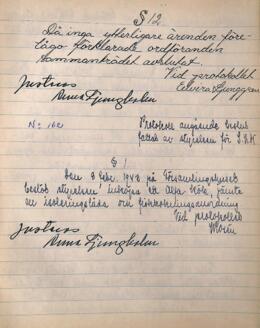 § 12
Då inga ytterligare ärenden före-
lågo förklarade ordföranden
sammanträdet avslutat.
Vid protokollet
Elvira Ljunggren
Justeras
Anna Ljungholm
No 162
Protokoll angående beslut
fattat av styrelsen för S.R.K
§ 1
Den 9 Febr. 1948 på Församlingshuset
beslöt styrelsen inköpa ett Alfa, jämte
en isoleringslåda
Vid protokollet
Justeras
Anna Ljungholm